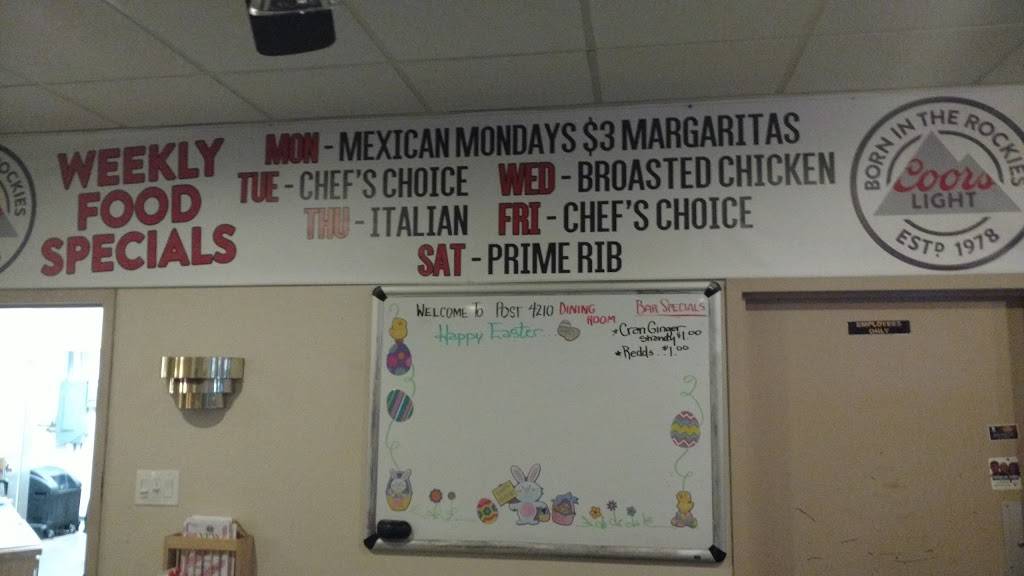 WEEKLY
FOOD
SPECIALS
MON - MEXICAN MONDAYS $3 MARGARITAS
TUE - CHEF'S CHOICE WED - BROASTED CHICKEN
THU - ITALIAN FRI - CHEF'S CHOICE
SAT - PRIME RIB
BORN IN THE ROCKIES
Coors
LIGHT
ESTD 1978
ROCKIES
WELCOME To POST 4210 DINING ROOM
Happy Easter
BAR SPECIALS
*Cran Ginger
Shandy $1.00
*Redds..$1.00
EMPLOYEES
ONLY